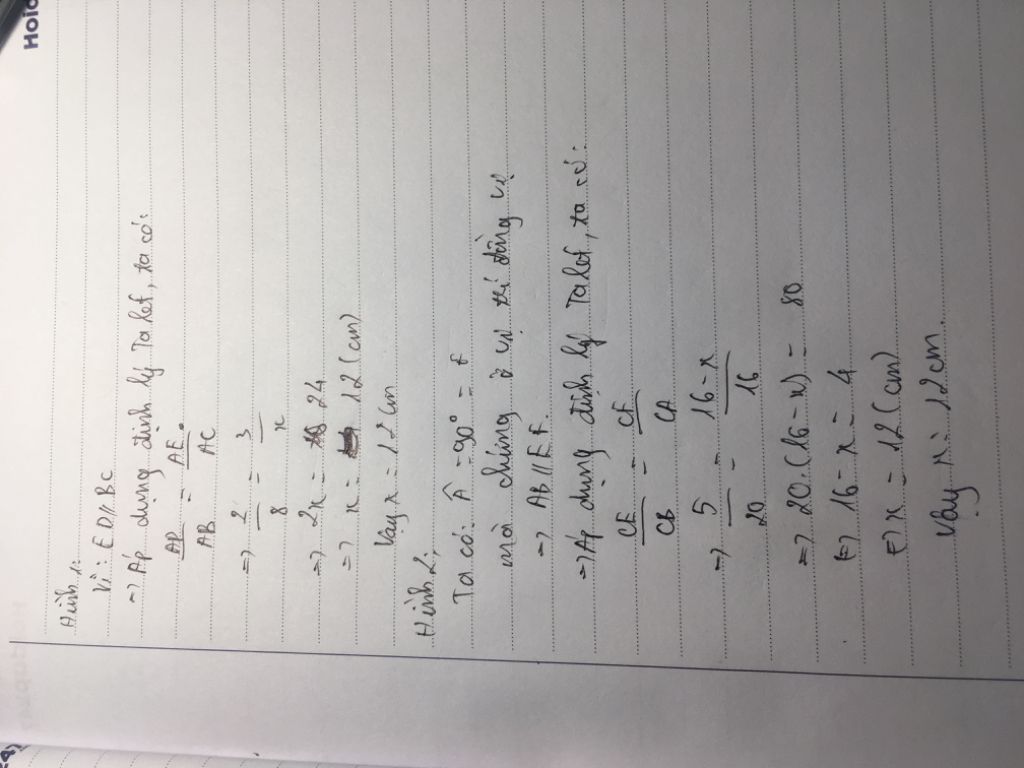 Hình 1:
Vì: ED // BC
=> Áp dụng định lý Talet, ta có:
AD/AB = AE/AC
=> 2/8 = 3/x
=> 2x = 24
=> x = 12 (cm)
Vậy x = 12 cm
Hình 2:
Ta có: Â = 90° = E
mà chúng ở vị trí đồng vị
=> AB // EF
=> Áp dụng định lý Talet, ta có:
CE/CB = CF/CA
=> 5/20 = 16-x/16
=> 20.(16-x) = 80
<=> 16-x = 4
<=> x = 12 (cm)
Vậy x = 12 cm.